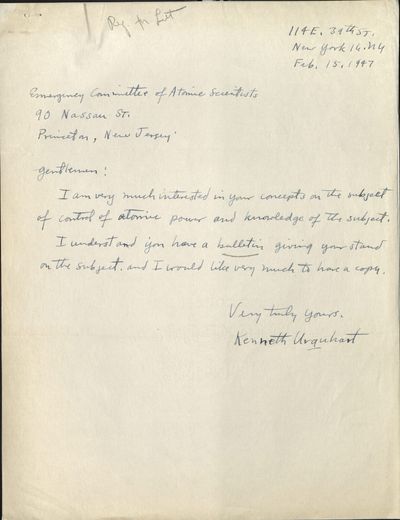 Reg. for Lit
114 E. 39th ST.
New York 16. NY
Feb. 15. 1947
Emergency Committee of Atomic Scientists
90 Nassau ST.
Princeton, New Jersey.
Gentlemen:
I am very much interested in your concepts on the subject
of control of atomic power and knowledge of the subject.
I understand you have a bulletin giving your stand
on the subject. and I would like very much to have a copy.
Very truly yours.
Kenneth Urquhart